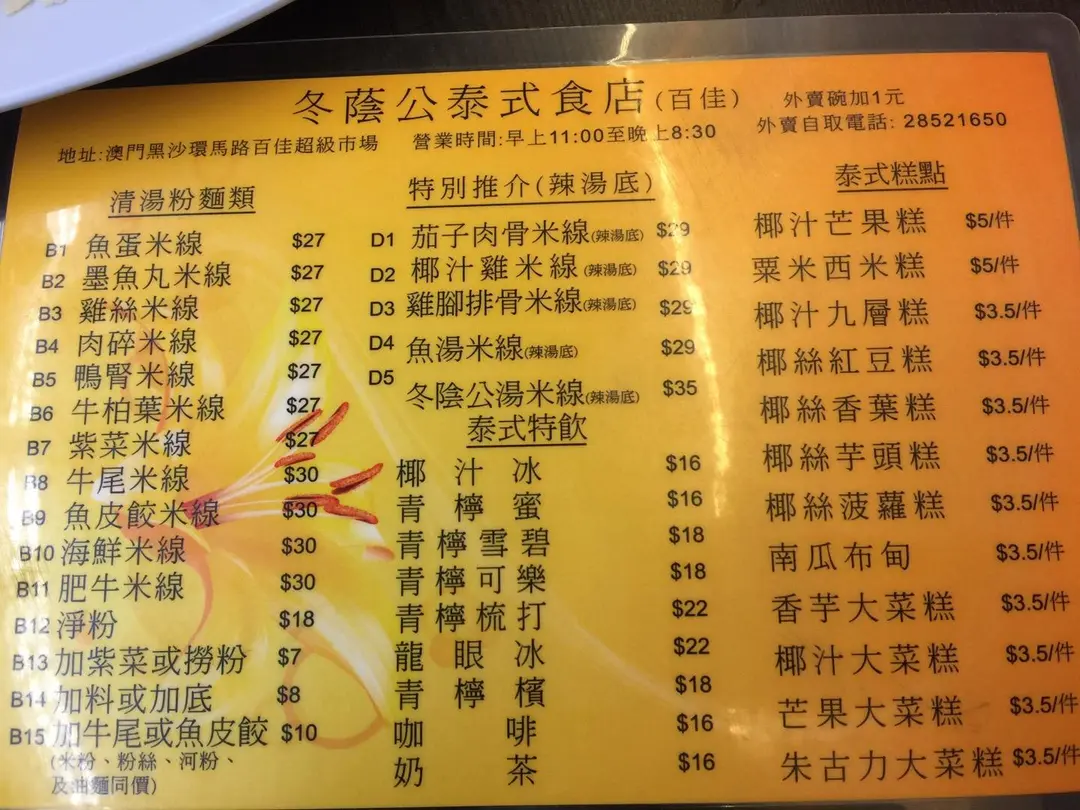 冬蔭公泰式食店(百佳)
外賣碗加1元
外賣自取電話: 28521650
地址:澳門黑沙環馬路百佳超級市場
營業時間:早上11:00至晚上8:30
清湯粉麵類
B1 魚蛋米線 $27
B2 墨魚丸米線 $27
B3 雞絲米線 $27
B4 肉碎米線 $27
B5 鴨腎米線 $27
B6 牛柏葉米線 $27
B7 紫菜米線 $27
B8 牛尾米線 $30
B9 魚皮餃米線 $30
B10 海鮮米線 $30
B11 肥牛米線 $30
B12 淨粉 $18
B13 加紫菜或撈粉 $7
B14 加料或加底 $8
B15 加牛尾或魚皮餃 $10
(米粉、粉絲、河粉、
及油麵同價)
特別推介(辣湯底)
D1 茄子肉骨米線(辣湯底) $29
D2 椰汁雞米線(辣湯底) $29
D3 雞腳排骨米線(辣湯底) $29
D4 魚湯米線(辣湯底) $29
D5 冬陰公湯米線(辣湯底) $35
泰式特飲
椰汁冰 $16
青檸蜜 $16
青檸雪碧 $18
青檸可樂 $18
青檸梳打 $22
龍眼冰 $22
青檸檳 $18
咖啡 $16
奶茶 $16
泰式糕點
椰汁芒果糕 $5/件
粟米西米糕 $5/件
椰汁九層糕 $3.5/件
椰絲紅豆糕 $3.5/件
椰絲香葉糕 $3.5/件
椰絲芋頭糕 $3.5/件
椰絲菠蘿糕 $3.5/件
南瓜布甸 $3.5/件
香芋大菜糕 $3.5/件
椰汁大菜糕 $3.5/件
芒果大菜糕 $3.5/件
朱古力大菜糕 $3.5/件